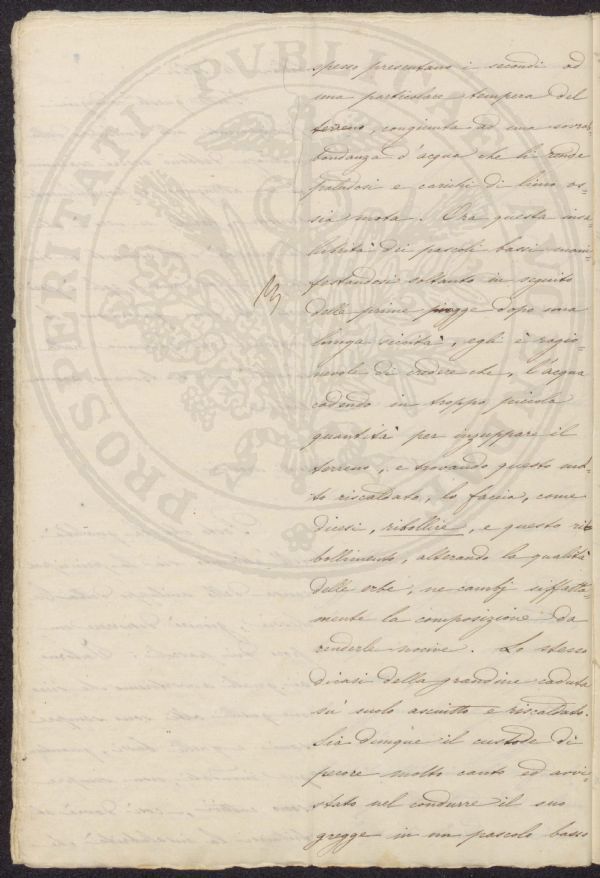 PROSPERITATI PVBLICAE AVGENDAE
spesso presentano i secondi ad
una particolare tempera del
terreno, congiunta ad una sovrab
bondanza d'acqua che li rende
paludosi e carichi di limo os-
sia mota. Ora questa insa-
lubrità dei pascoli bassi mani-
festandosi soltanto in seguito
delle prime piogge dopo una
lunga siccità, egli è ragio-
nevole di credere che, l'acqua
cadendo in troppo piccola
quantità per inzuppare il
terreno, e trovando questo mol-
to riscaldato, lo faccia, come
dicesi, ribollire, e questo rib
bollimento, alterando la qualità
delle erbe, ne cambj siffatta-
mente la composizione da
renderle nocive. Lo stesso
dicasi della grandine caduta
su suolo asciutto e riscaldato.
Sia dunque il custode di
pecore molto cauto ed avvi-
stato nel condurre il suo
gregge in un pascolo basso